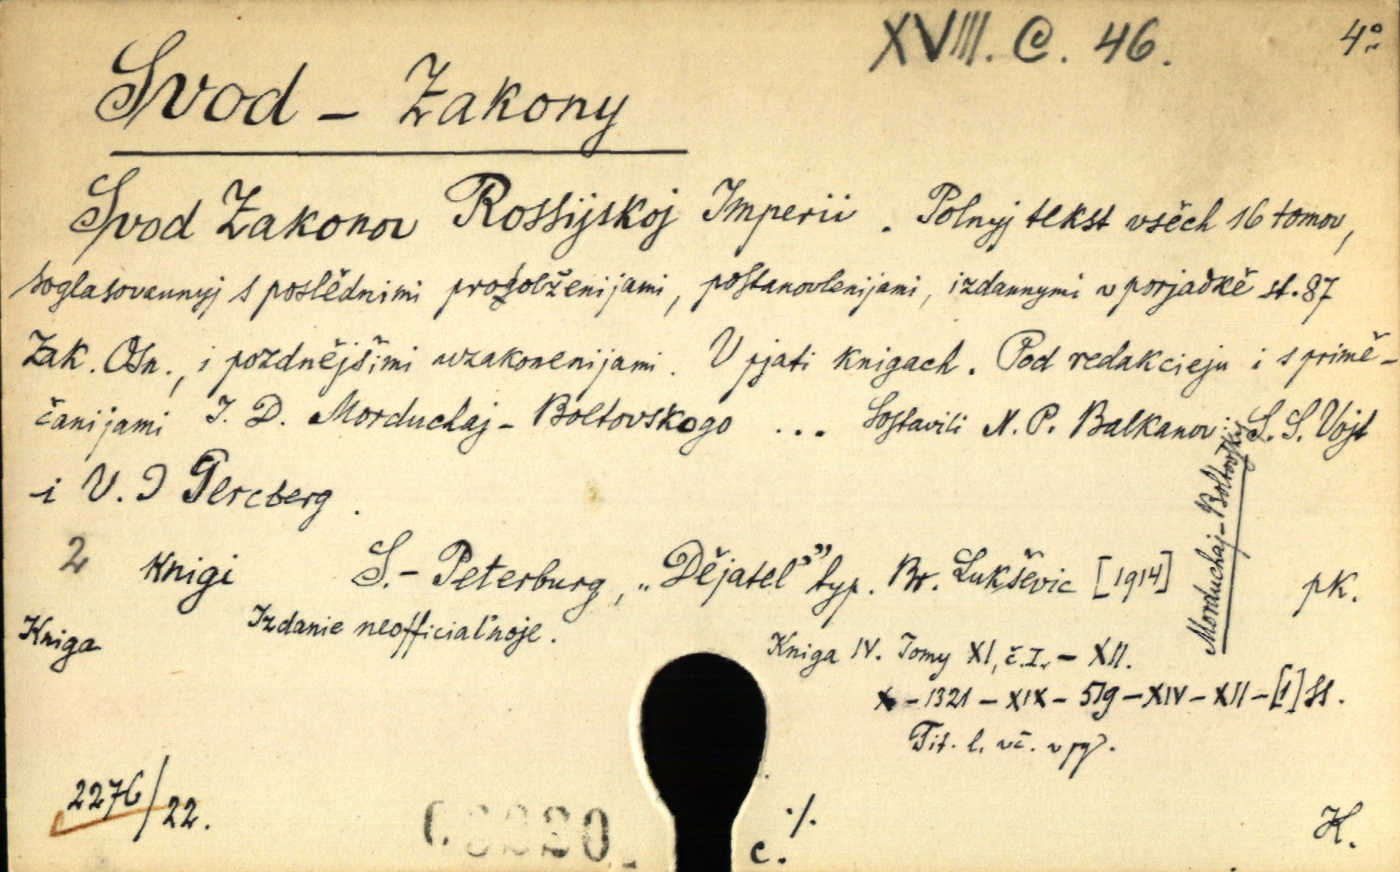 XVIII. C. 46.
4°
Svod – Zakony
Svod Zakonov Rossijskoj Imperii. Polnyj tekst vsěch 16 tomov,
soglasovannyj s poslědnimi prodolženijami, postanovlenijami, izdannymi v porjadkě st. 87
Zak. Osn., i pozdnějšimi uzakonenijami. V pjati knigach. Pod redakcieju i s primě-
čanijami I. D. Morduchaj-Boltovskogo ... Sostavili N. P. Balkanov, S. S. Vojt
i V. I Gercberg.
Morduchaj-Boltovskij
2 knigi S.-Peterburg, „Dějatel'" typ. Br. Lukševic [1914] pk.
Izdanie neofficiaľnoje.
Kniga
Kniga IV. Tomy XI, č. I. – XII.
X – 1321 – XIX – 519 – XIV – XII – [1] ss.
Tit. l. vč. v pg.
2276/22.
c. ./.
K.